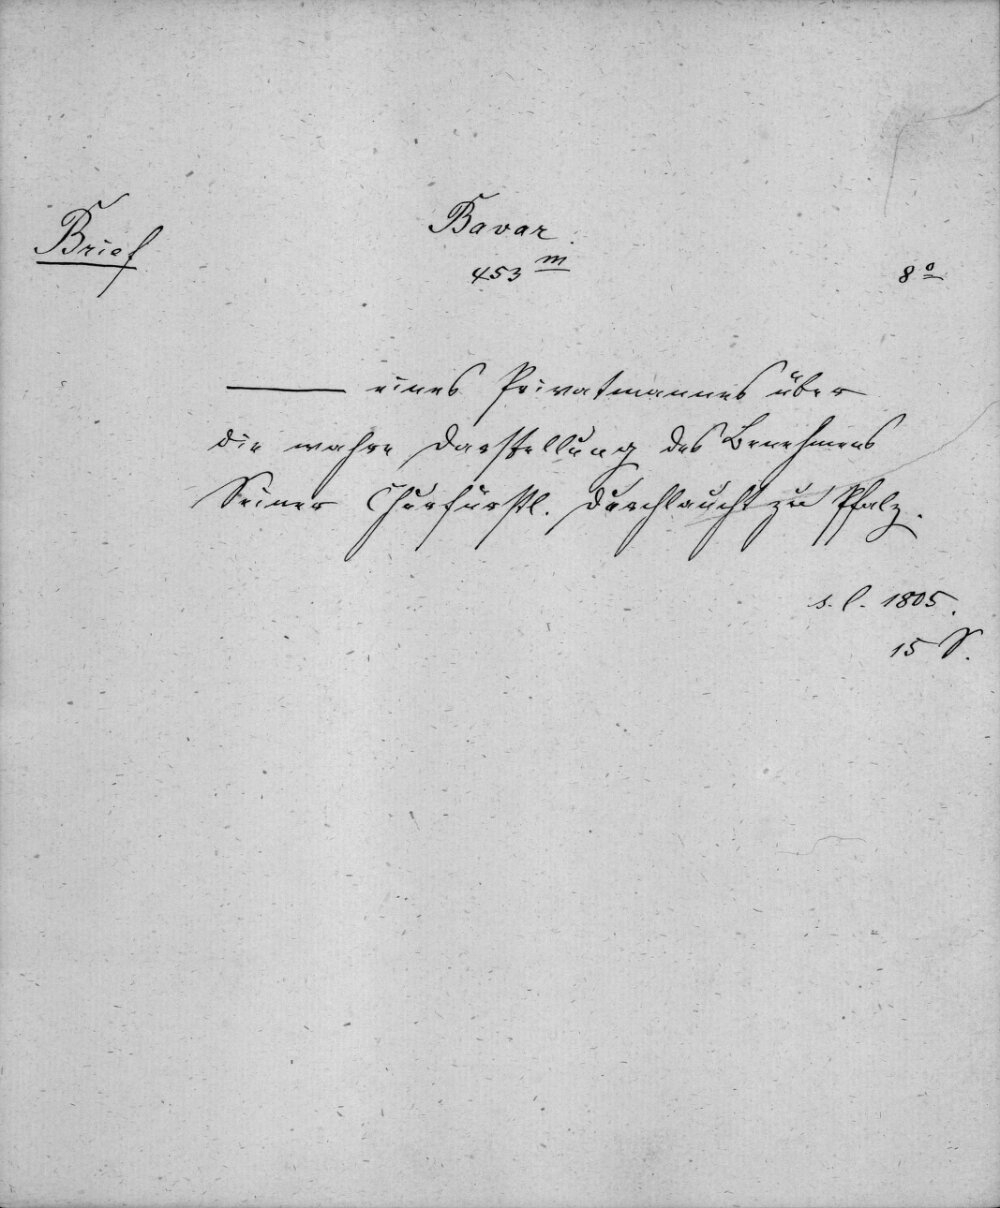 Brief
Bavar.
453 m
8o
— eines Privatmannes über
die wahre Darstellung des Benehmens
Seiner Churfürstl. Durchlaucht zu Pfalz.
s. l. 1805.
15 S.